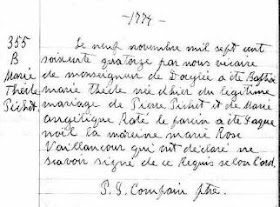 -1774-
355
B
Marie
Thècle
Pichet
Le neuf novembre mil sept cent
soixante quatorze par nous vicaire
de monseigneur de a été Baptisé
marie thècle née d'hier du légitime
mariage de Pierre Pichet et de Marie
angélique Raté le parin a été Jaque
noël la mareine marie Rose
Vaillancour qui ont déclaré ne
scavoir signé de ce Requis selon l'ord.
P. G. Compain ptre.